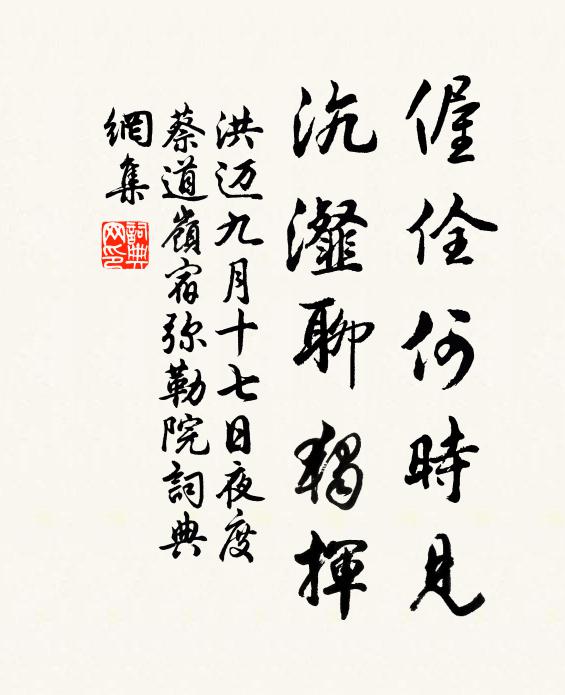 偓佺何時見
沆瀣聊獨揮
洪迈九月十七日夜度
蔡道嶺宿弥勒院詞典
網集
詞典
网印